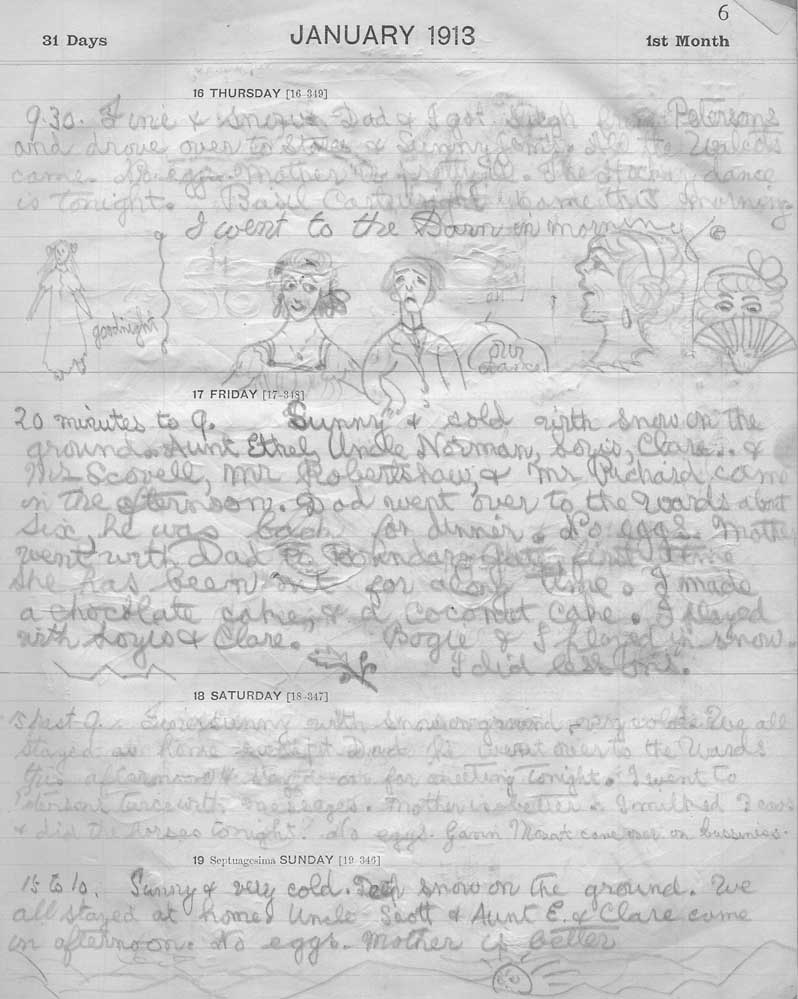 6
31 Days
JANUARY 1913
1st Month
16 THURSDAY [16-349]
9.30. Fine & Snow. Dad & I got Sleigh from Petersons
and drove over to Stores & Sunny
came. No eggs. Mother is pretty ill. The Hockey dance
is tonight. Basil Cartwright came this morning
I went to the Barn in morning
goodnight
our
dance
17 FRIDAY [17-348]
20 minutes to 9. Sunny & cold with snow on the
ground. Aunt Ethel, Uncle Norman, Loyis, Clare. &
Mr Scovell, Mr Robertshaw, & Mr Prichard came
in the afternoon. Dad went over to the Wards about
Six, he was back for dinner. No eggs. Mother
went with Dad to Boundary Gate first time
she has been out for along time. I made
a chocolate cake, & a coconut cake. I played
with Loyis & Clare. Bogie & I played in snow.
I did
18 SATURDAY [18-347]
past 9. sunny with snow on ground very cold. We all
stayed at home except Dad he went over to the Wards
this afternoon & stayed over for meeting tonight. I went to
Petersons twice with messages. Mother is better. I milked 2 cows
& did the horses tonight. No eggs. Gavin Mouat came over on bussiness.
19 Septuagesima SUNDAY [19-346]
15 to 10. Sunny & very cold. Deep snow on the ground. We
all stayed at home. Uncle Scott & Aunt E. & Clare came
in afternoon. No eggs. Mother is better